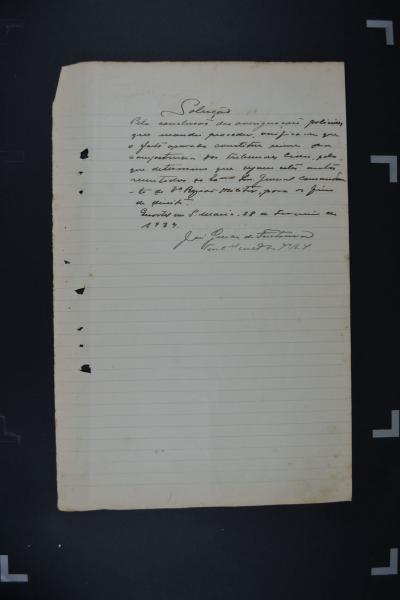 Solução
Pela conclusão das averiguações policiaes,
que mandei proceder, verifica-se que
o facto apurado constitue crime da
competencia dos tribunaes, pelo
que determino que sejam estes autos
remettidos ao Snr. General Comman
-te da 3ª Região Militar, para os fins
de direito.
Quartel em Sta Maria, 28 de de
1934.
José de
Ten. Cel.